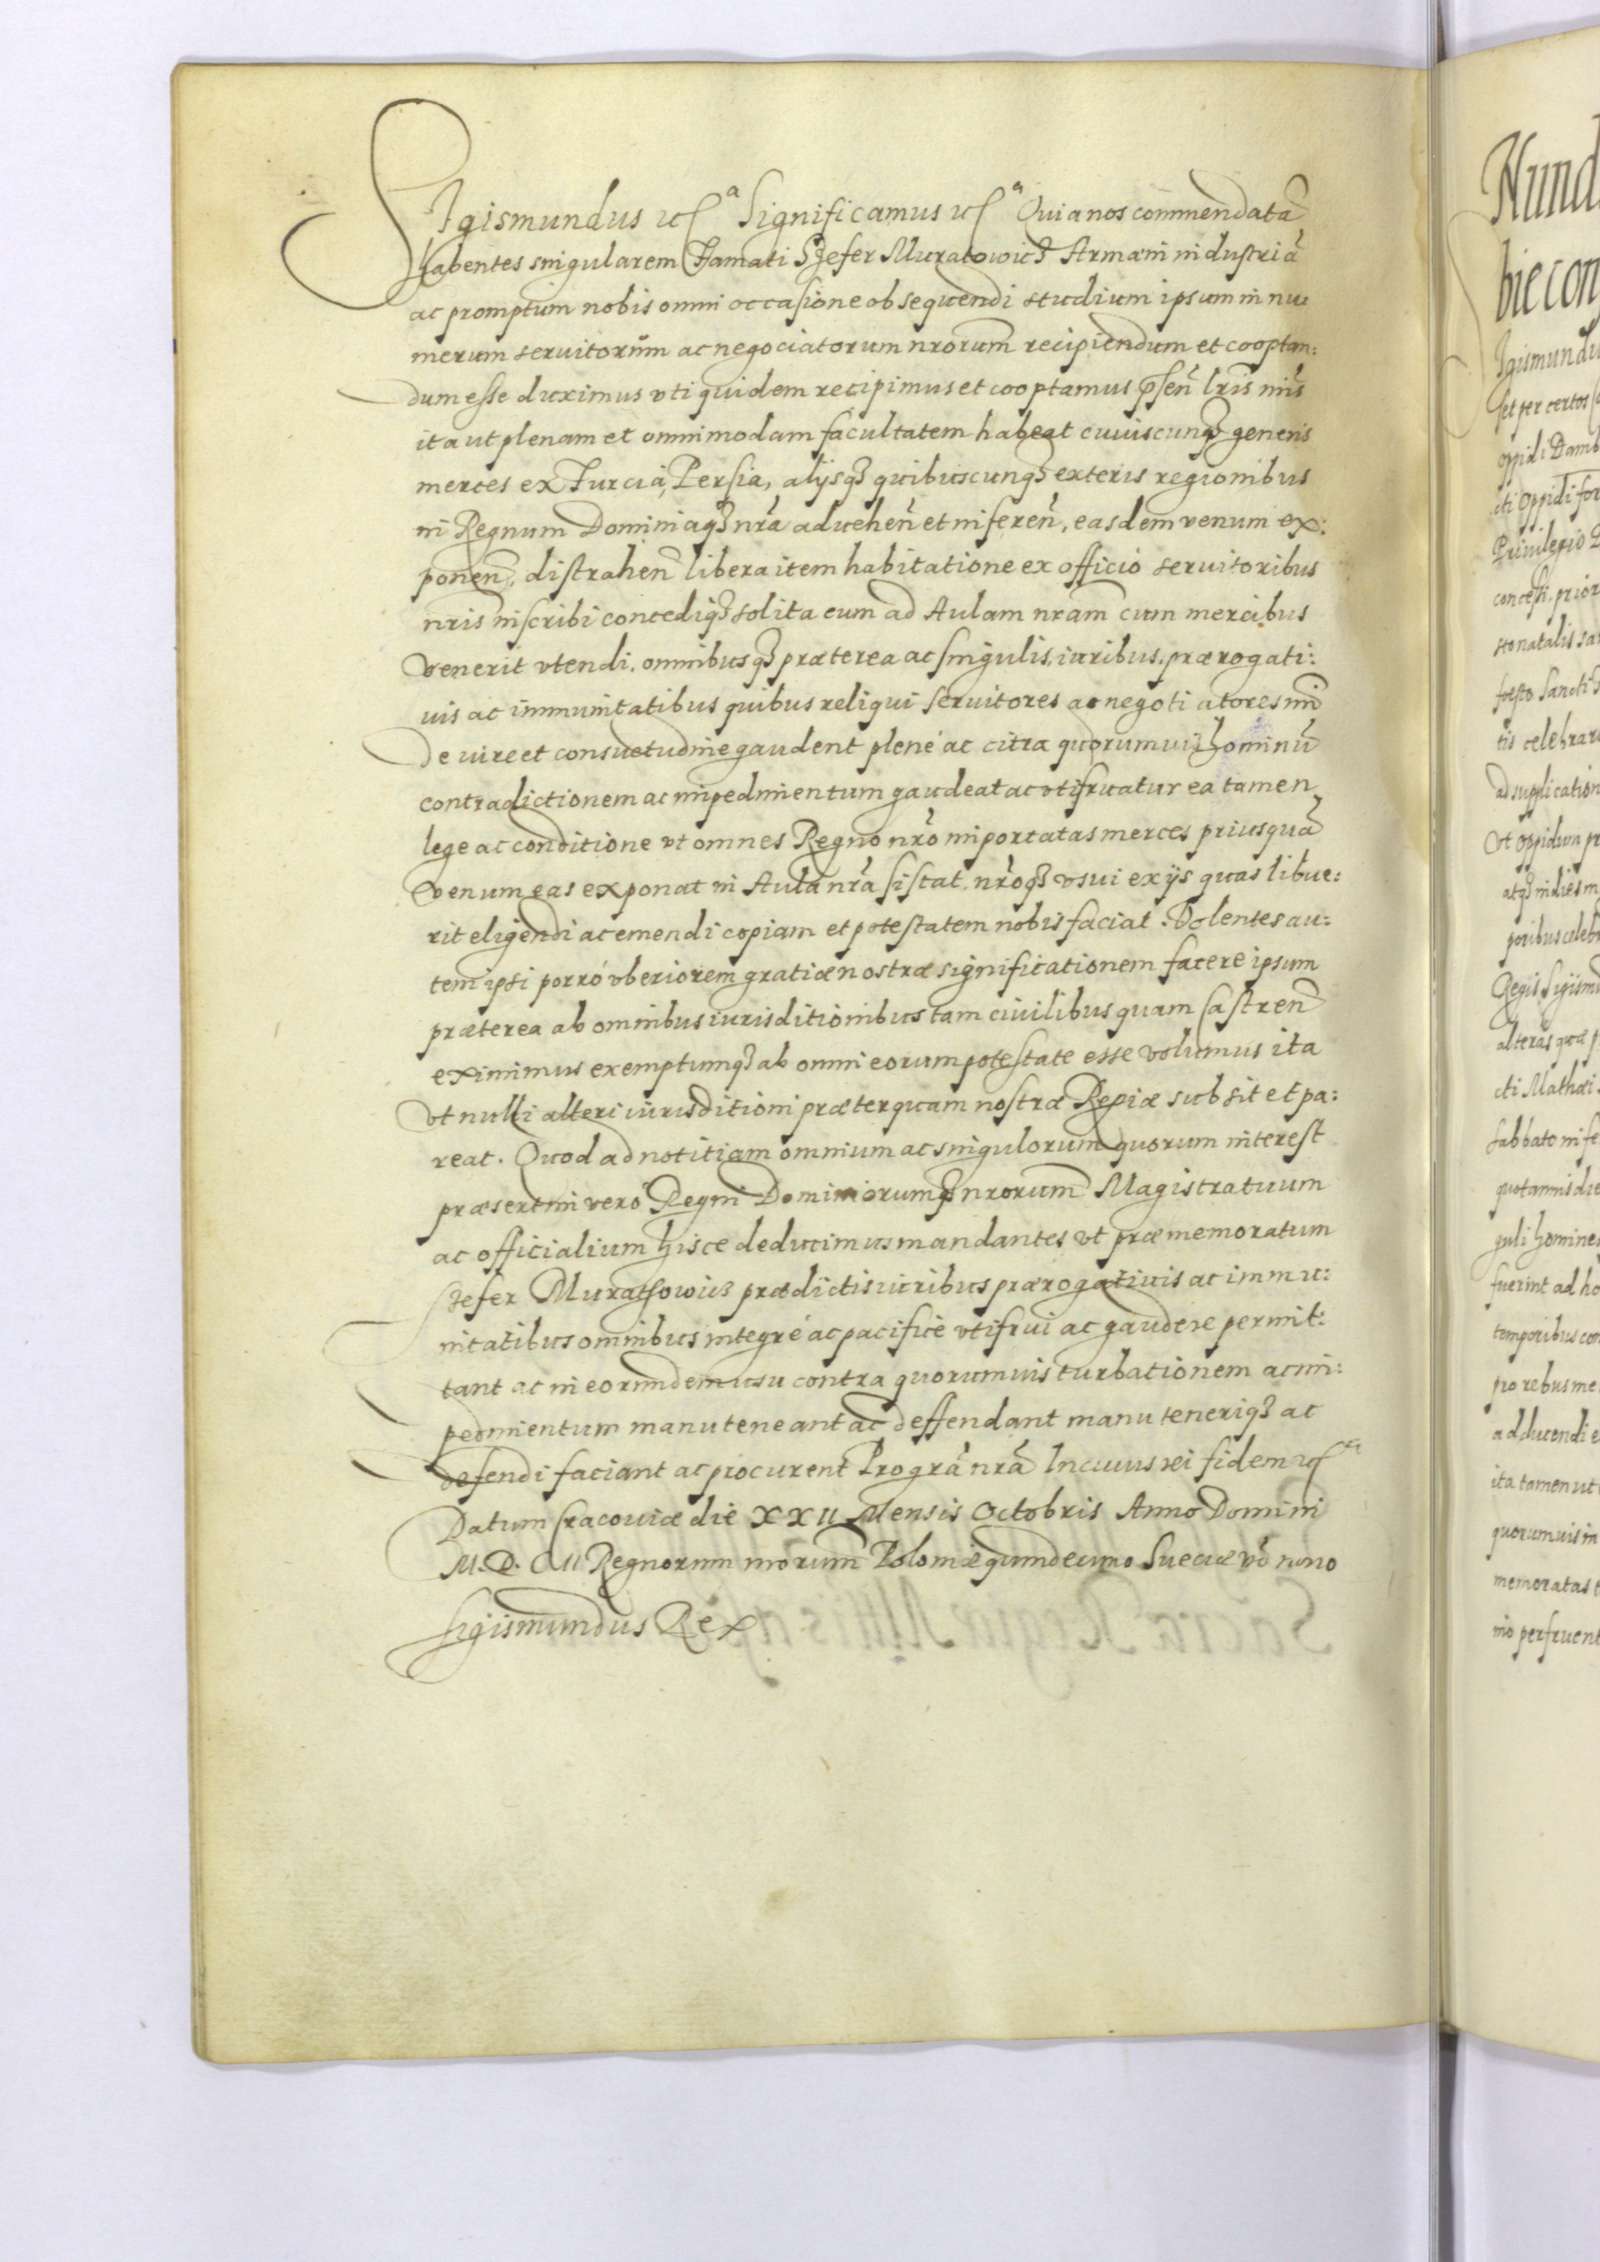 Sigismundus etc.ª Significamus etc.ª Quia nos commendatã
habentes singularem Famati Szefer Muratowicz Armæni industriã
ac promptum nobis omni occasione obsequendi studium ipsum in nu:
merum servitorum ac negociatorum nrorum recipiendum et cooptan:
dum esse duximus vti quidem recipimus et cooptamus pñsen lris nris
ita ut plenam et omnimodam facultatem habeat cuiuscunq generis
merces ex Turcia, Persia, alijsq quibuscunq exteris regionibus
in Regnum Dominiaq nra advehen et inferen, easdem venum ex:
ponen, distrahen libera item habitatione ex officio servitoribus
nris inscribi concediq solita cum ad Aulam nram cum mercibus
venerit vtendi, omnibusq præterea ac singulis, iuribus, prærogati:
uis ac immunitatibus quibus reliqui servitores ac negotiatores nri
de iure et consuetudine gaudent plenè ac citra quorumvis hominũ
contradictionem ac impedimentum gaudeat ac vtifruatur ea tamen
lege ac conditione vt omnes Regno nro importatas merces priusquã
venum eas exponat in Aula nra sistat, nroq vsui ex ijs quas libue:
rit eligendi ac emendi copiam et potestatem nobis faciat. Volentes au:
tem ipsi porrò vberiorem gratiæ nostræ significationem facere ipsum
præterea ab omnibus iurisditionibus tam civilibus quam castren
eximimus exemptumq ab omni eorum potestate esse volumus ita
vt nulli alteri iurisditioni præterquam nostræ Regiæ subsit et pa:
reat. Quod ad notitiam omnium ac singulorum quorum interest
præsertim verò Regni Dominiorumq nrorum Magistratuum
ac officialium hisce deducimus mandantes vt præmemoratum
Szefer Muratowicz prædictis iuribus prærogativis ac immu:
nitatibus omnibus integrè ac pacificè vtifrui ac gaudere permit:
tant ac in eorundem usu contra quorumvis turbationem ac im:
pedimentum manuteneant ac deffendant manuteneriq ac
defendi faciant ac procurent Pro gra nra In cuius rei fidem etc.ª
Datum Cracoviæ die XXII Mensis Octobris Anno Domini
M. D. CII Regnorum nrorum Poloniæ quindecimo Sueciæ vò nono
Sigismundus Rex
Nund
bie con
Igismundu
set per certos
oppidi Damb
cti oppidi for
Privilegio
concessi. prior
festo Sancti
tis celebrar
ad supplication
Vt oppidum pr
atq indies m
poribus celeb
Regis Sigism
alteras quæ p
cti Mathæi
sabbato in fe
quotannis die
guli homine
fuerint ad ho
temporibus con
pro rebus me
adducendi e
ita tamen ut
quorumvis in
memoratas
mo perfruent